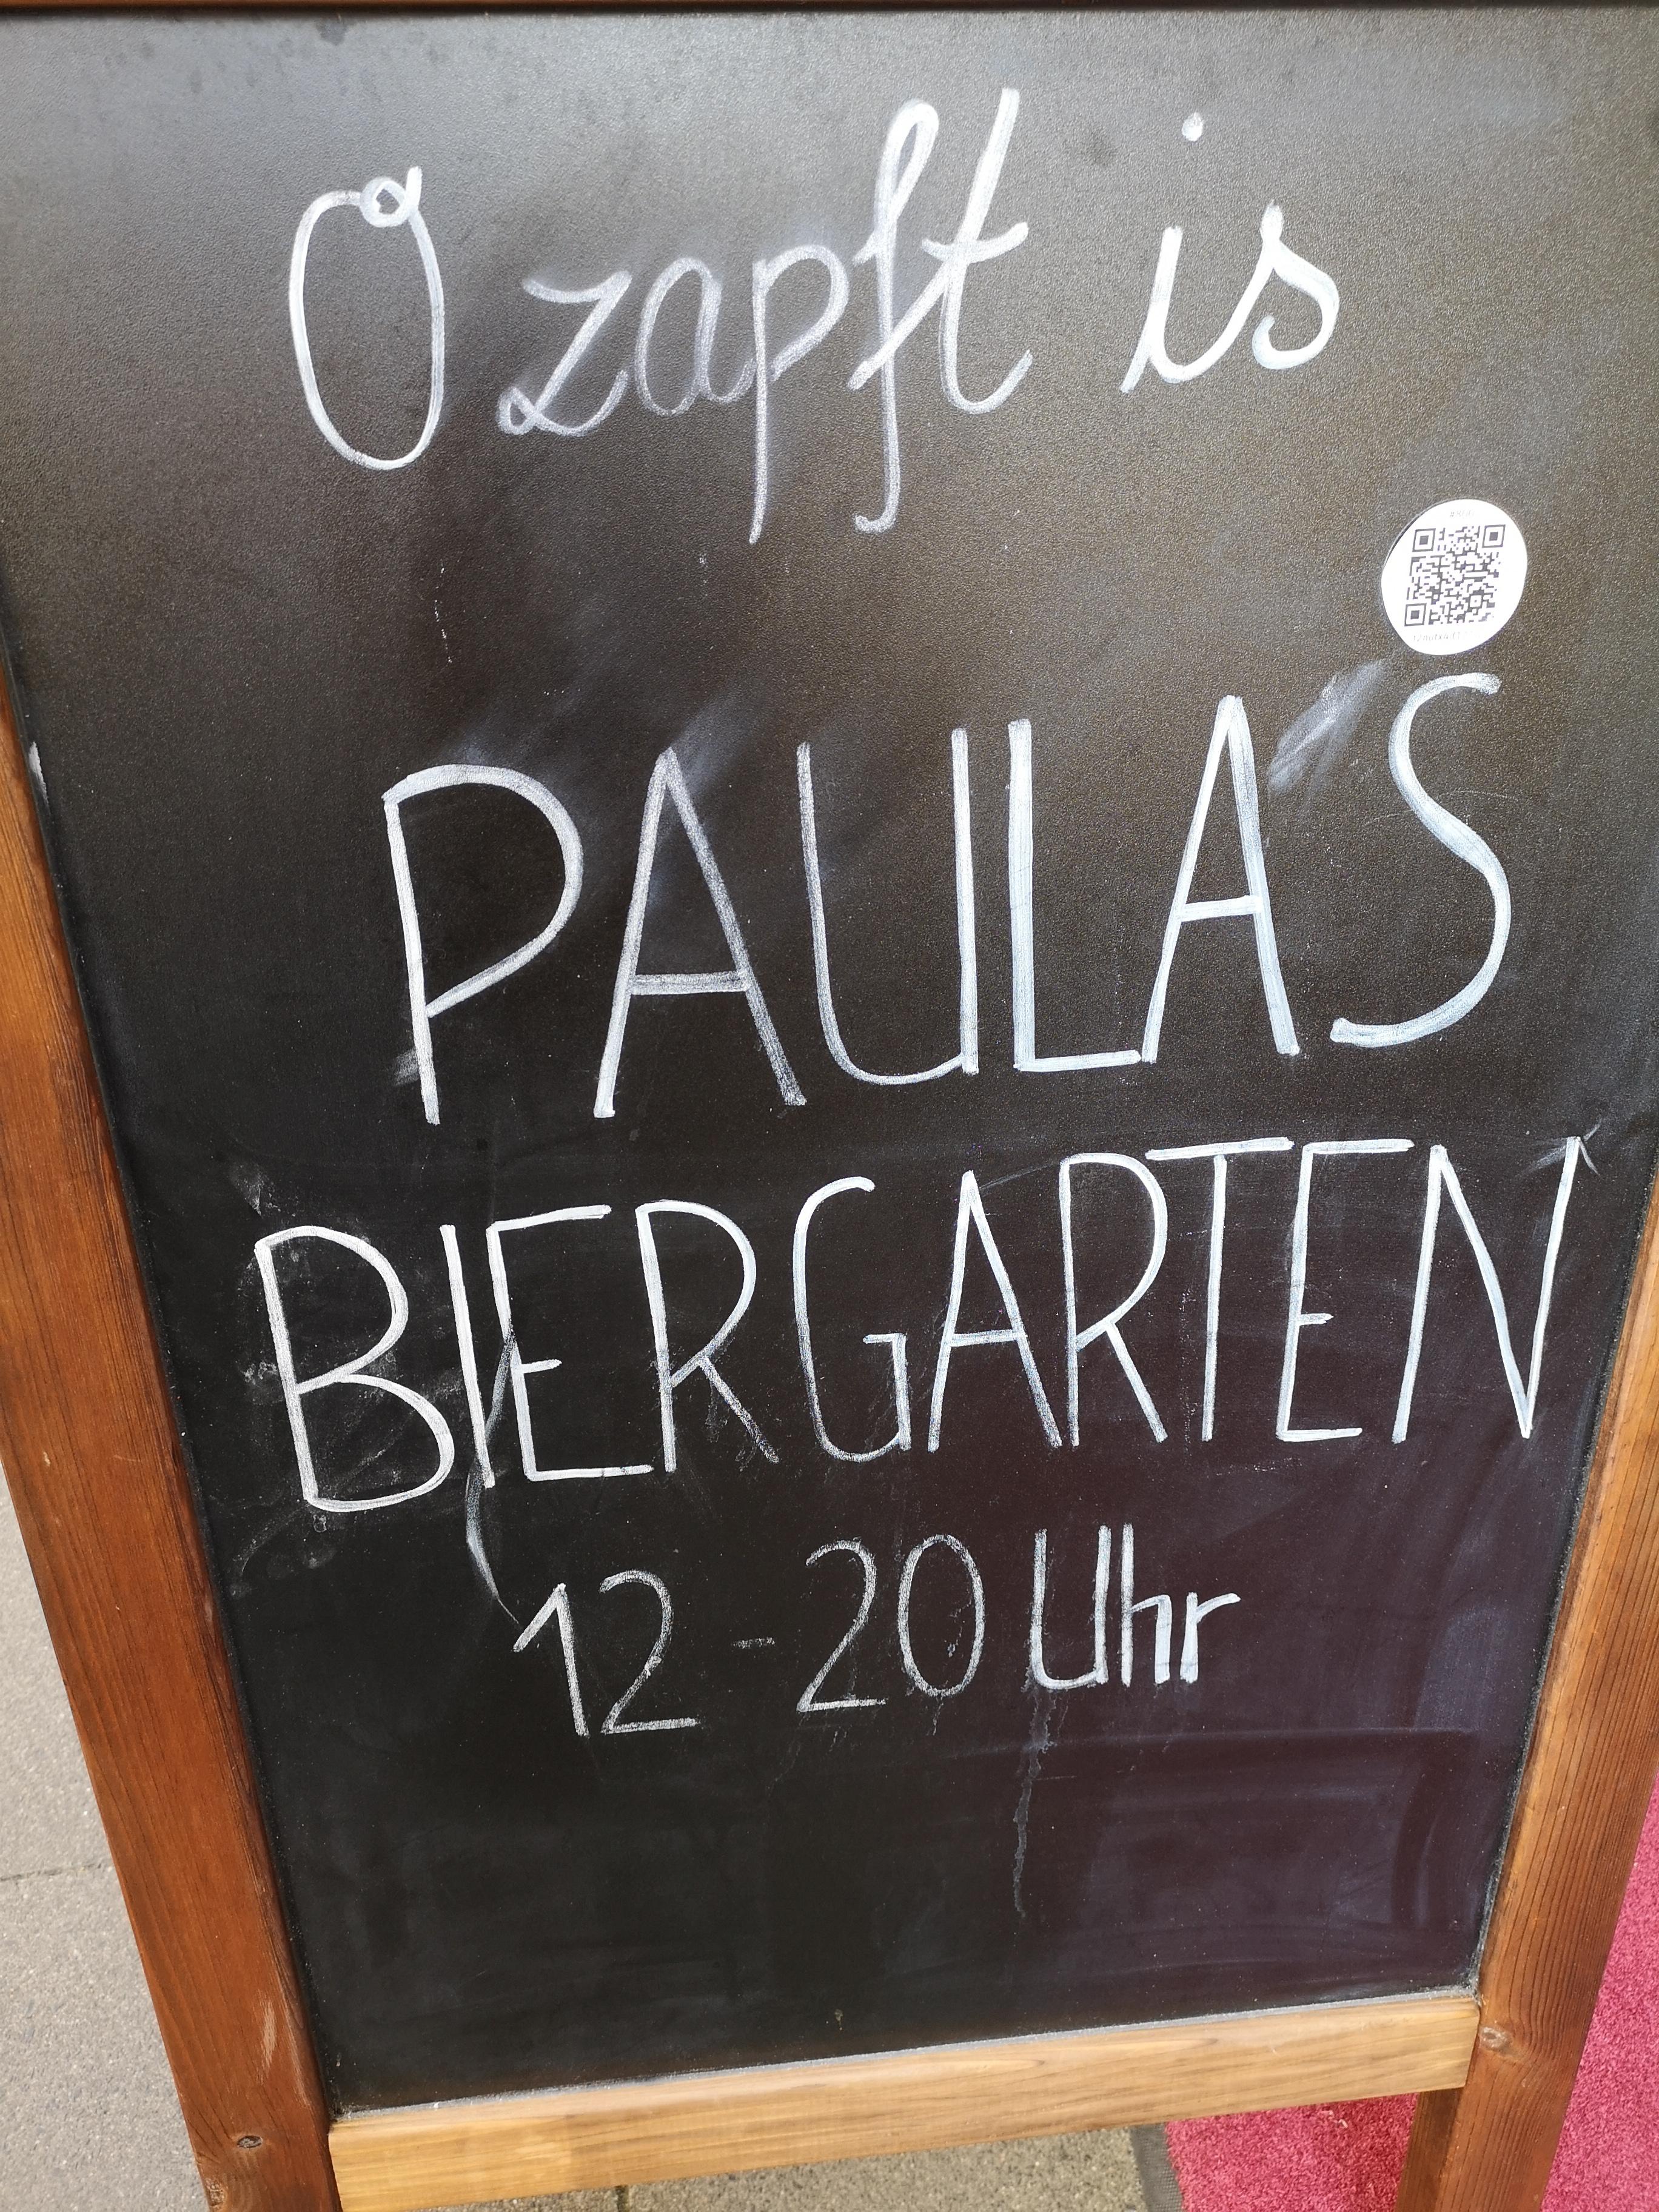 O zapft is
PAULAS
BIERGARTEN
12-20 Uhr